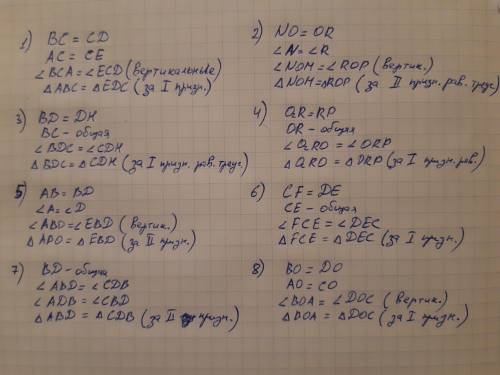 1) BC = CD
AC = CE
∠BCA = ∠ECD (вертикальные)
△ABC = △EDC (за I призн.)
2) NO = OR
∠N = ∠R
∠NOM = ∠ROP (вертик.)
△NOM = △ROP (за II призн. рав. треуг.
3) BD = DH
BC - общая
∠BDC = ∠CDH
△BDC = △CDH (за I призн. рав. треуг.)
4) QR = RP
OR - общая
∠QRO = ∠ORP
△QRO = △ORP (за I призн. рав.)
5) AB = BD
∠A = ∠D
∠ABO = ∠EBD (вертик.)
△APO = △EBD (за II призн.)
6) CF = DE
CE - общая
∠FCE = ∠DEC
△FCE = △DEC (за I призн.)
7) BD - общая
∠ABD = ∠CDB
∠ADB = ∠CBD
△ABD = △CDB (за II призн.)
8) BO = DO
AO = CO
∠BOA = ∠DOC (вертик.)
△BOA = △DOC (за I призн.)